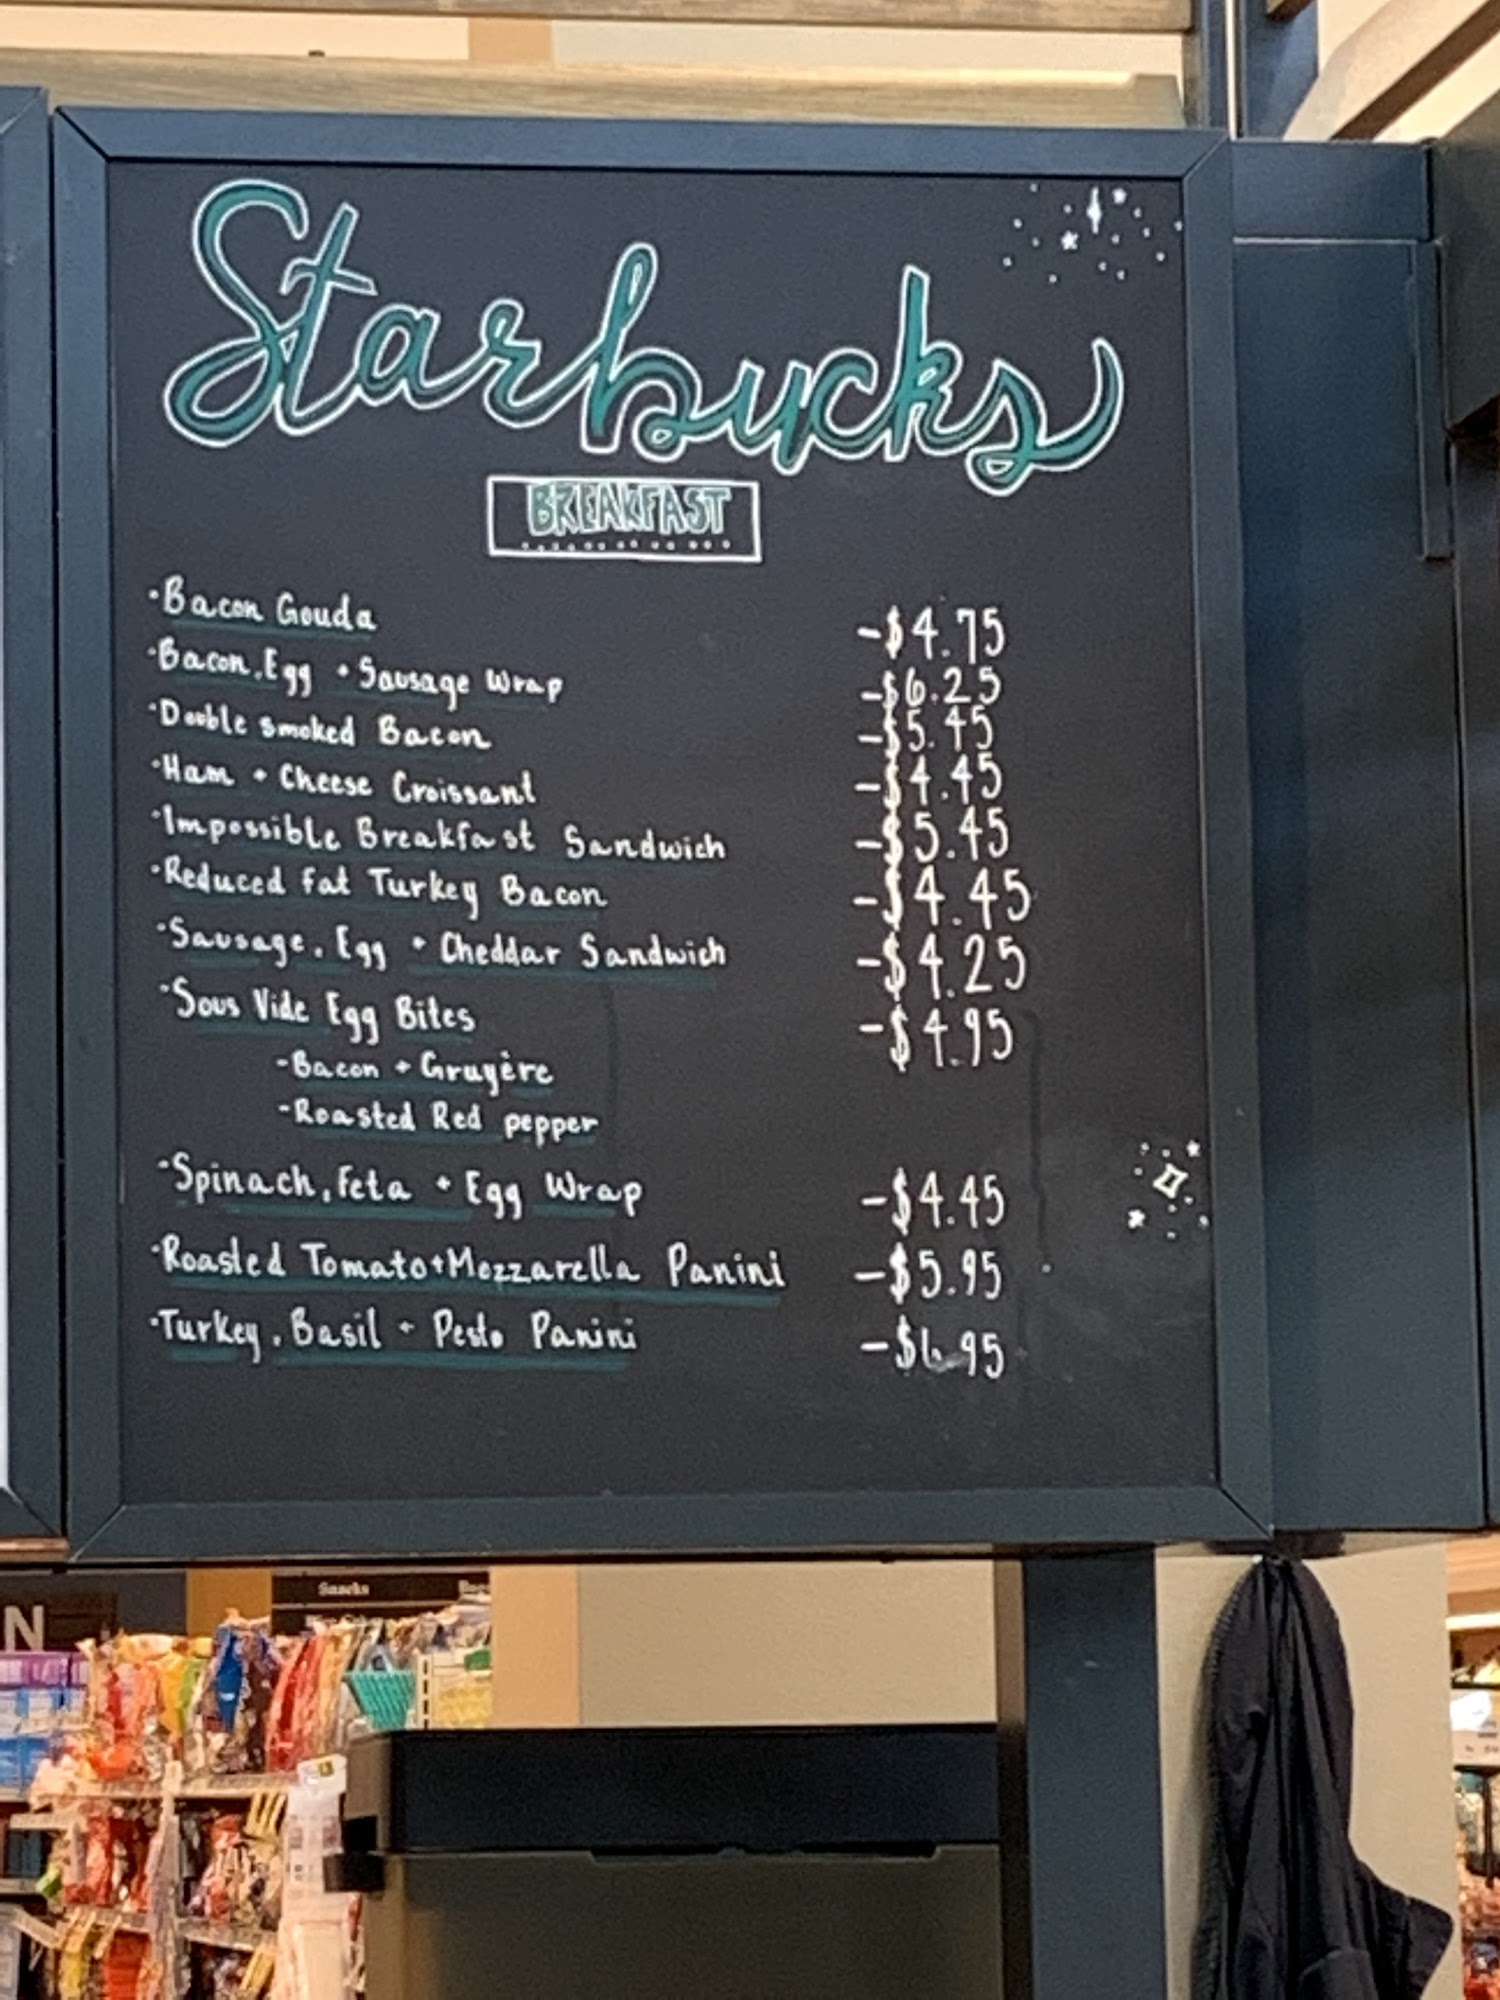 Starbucks
BREAKFAST
·Bacon Gouda -$4.75
·Bacon, Egg + Sausage Wrap -$6.25
·Double smoked Bacon -$5.45
·Ham + Cheese Croissant -$4.45
·Impossible Breakfast Sandwich -$5.45
·Reduced fat Turkey Bacon -$4.45
·Sausage, Egg + Cheddar Sandwich -$4.25
·Sous Vide Egg Bites -$4.95
-Bacon + Gruyère
-Roasted Red pepper
·Spinach, Feta + Egg Wrap -$4.45
·Roasted Tomato+Mozzarella Panini -$5.95
·Turkey, Basil + Pesto Panini -$6.95
N
Snacks